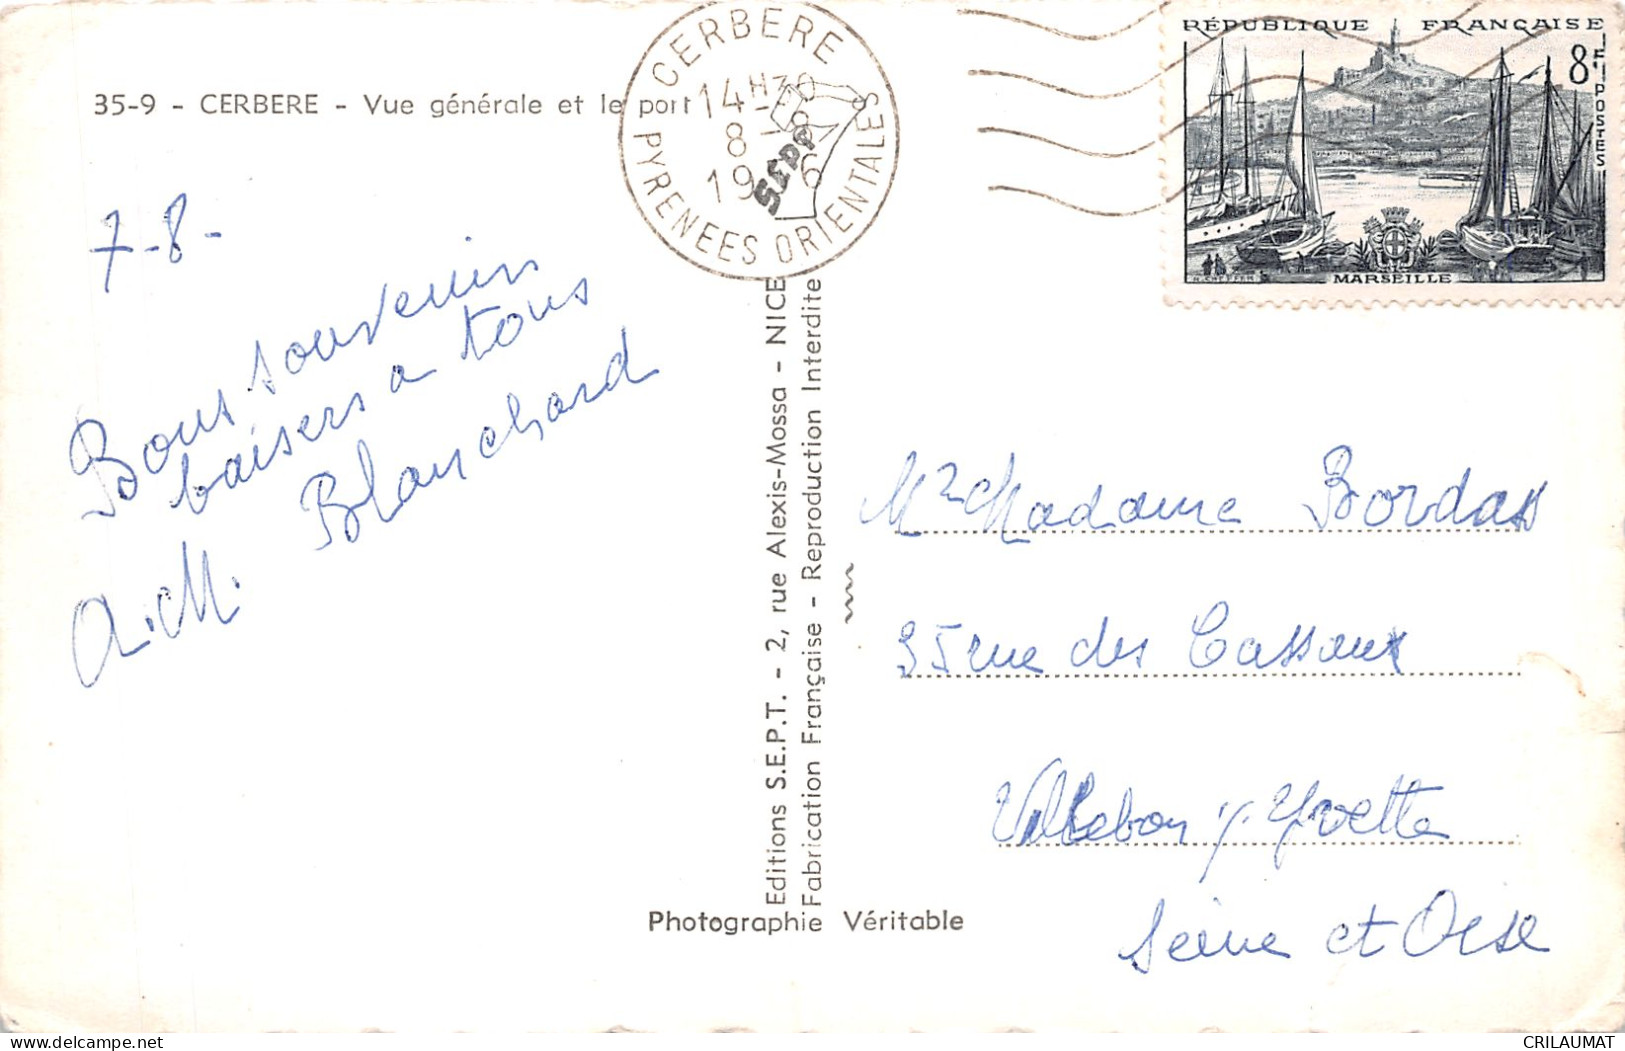 35-9 - CERBERE - Vue générale et le port
CERBERE
14H30
8 - 8
19 6
PYRENEES ORIENTALES
SEPT
RÉPUBLIQUE FRANÇAISE
8F
POSTES
MARSEILLE
7-8-
Bons souvenirs
baisers a tous
Blanchard
A.M.
Editions S.E.P.T. - 2, rue Alexis-Mossa - NICE
Fabrication Française - Reproduction Interdite
Photographie Véritable
Mr Madame Bordas
35 rue des Cassaux
Villebon s/ Yvette
Seine et Oise
CRILAUMAT